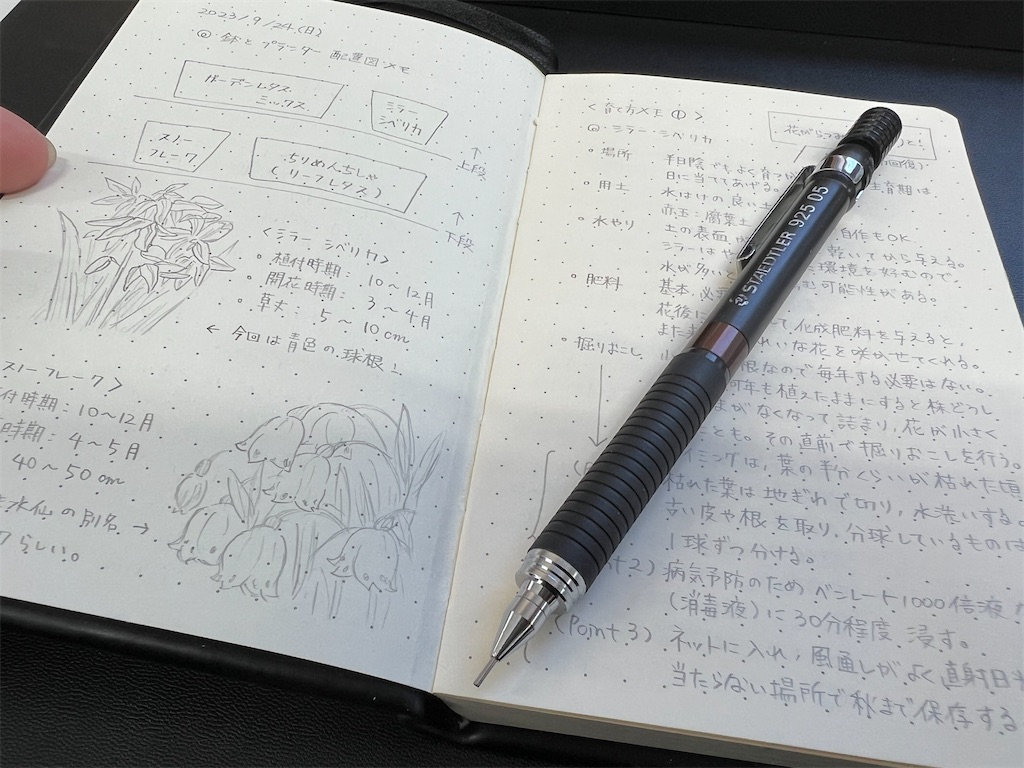 2023/9/24(日)
◎鉢とプランター 配置図メモ
ガーデンレタス
ミックス
ミラー
シベリカ
↑
上段
スノー
フレーク
ちりめんちしゃ
(リーフレタス)
↑
下段
<ミラー シベリカ>
・植付時期:10〜12月
・開花時期:3〜4月
・草丈:5〜10cm
← 今回は青色の球根!
スノーフレーク>
付時期:10〜12月
時期:4〜5月
40〜50cm
水仙の別名→
らしい。
<育て方メモ①>
◎ミラー・シベリカ
・場所 半日陰でもよく育つ
生育期は
日に当ててあげる。
・用土 水はけの良い土
赤玉:腐葉土
自作もOK
・水やり 土の表面
乾いてから与える。
ミラーは
環境を好むので
水が多いと
可能性がある。
・肥料 基本 必
花後に
て化成肥料を与えると、
また
れいな花を咲かせてくれる。
・掘りおこし
根なので毎年する必要はない。
何年も植えたままにすると株どうし
がなくなって詰まり、花が小さく
ことも。その直前で掘りおこしを行う。
イミングは、葉の半分くらいが枯れた頃
枯れた葉は地ぎわで切り、水洗いする。
古い皮や根を取り、分球しているものは
1球ずつ分ける。
nt2) 病気予防のためベンレート1000倍液
(消毒液)に30分程度 浸す。
(Point3) ネットに入れ、風通しがよく直射日光
当たらない場所で秋まで保存する
STAEDTLER 925 05